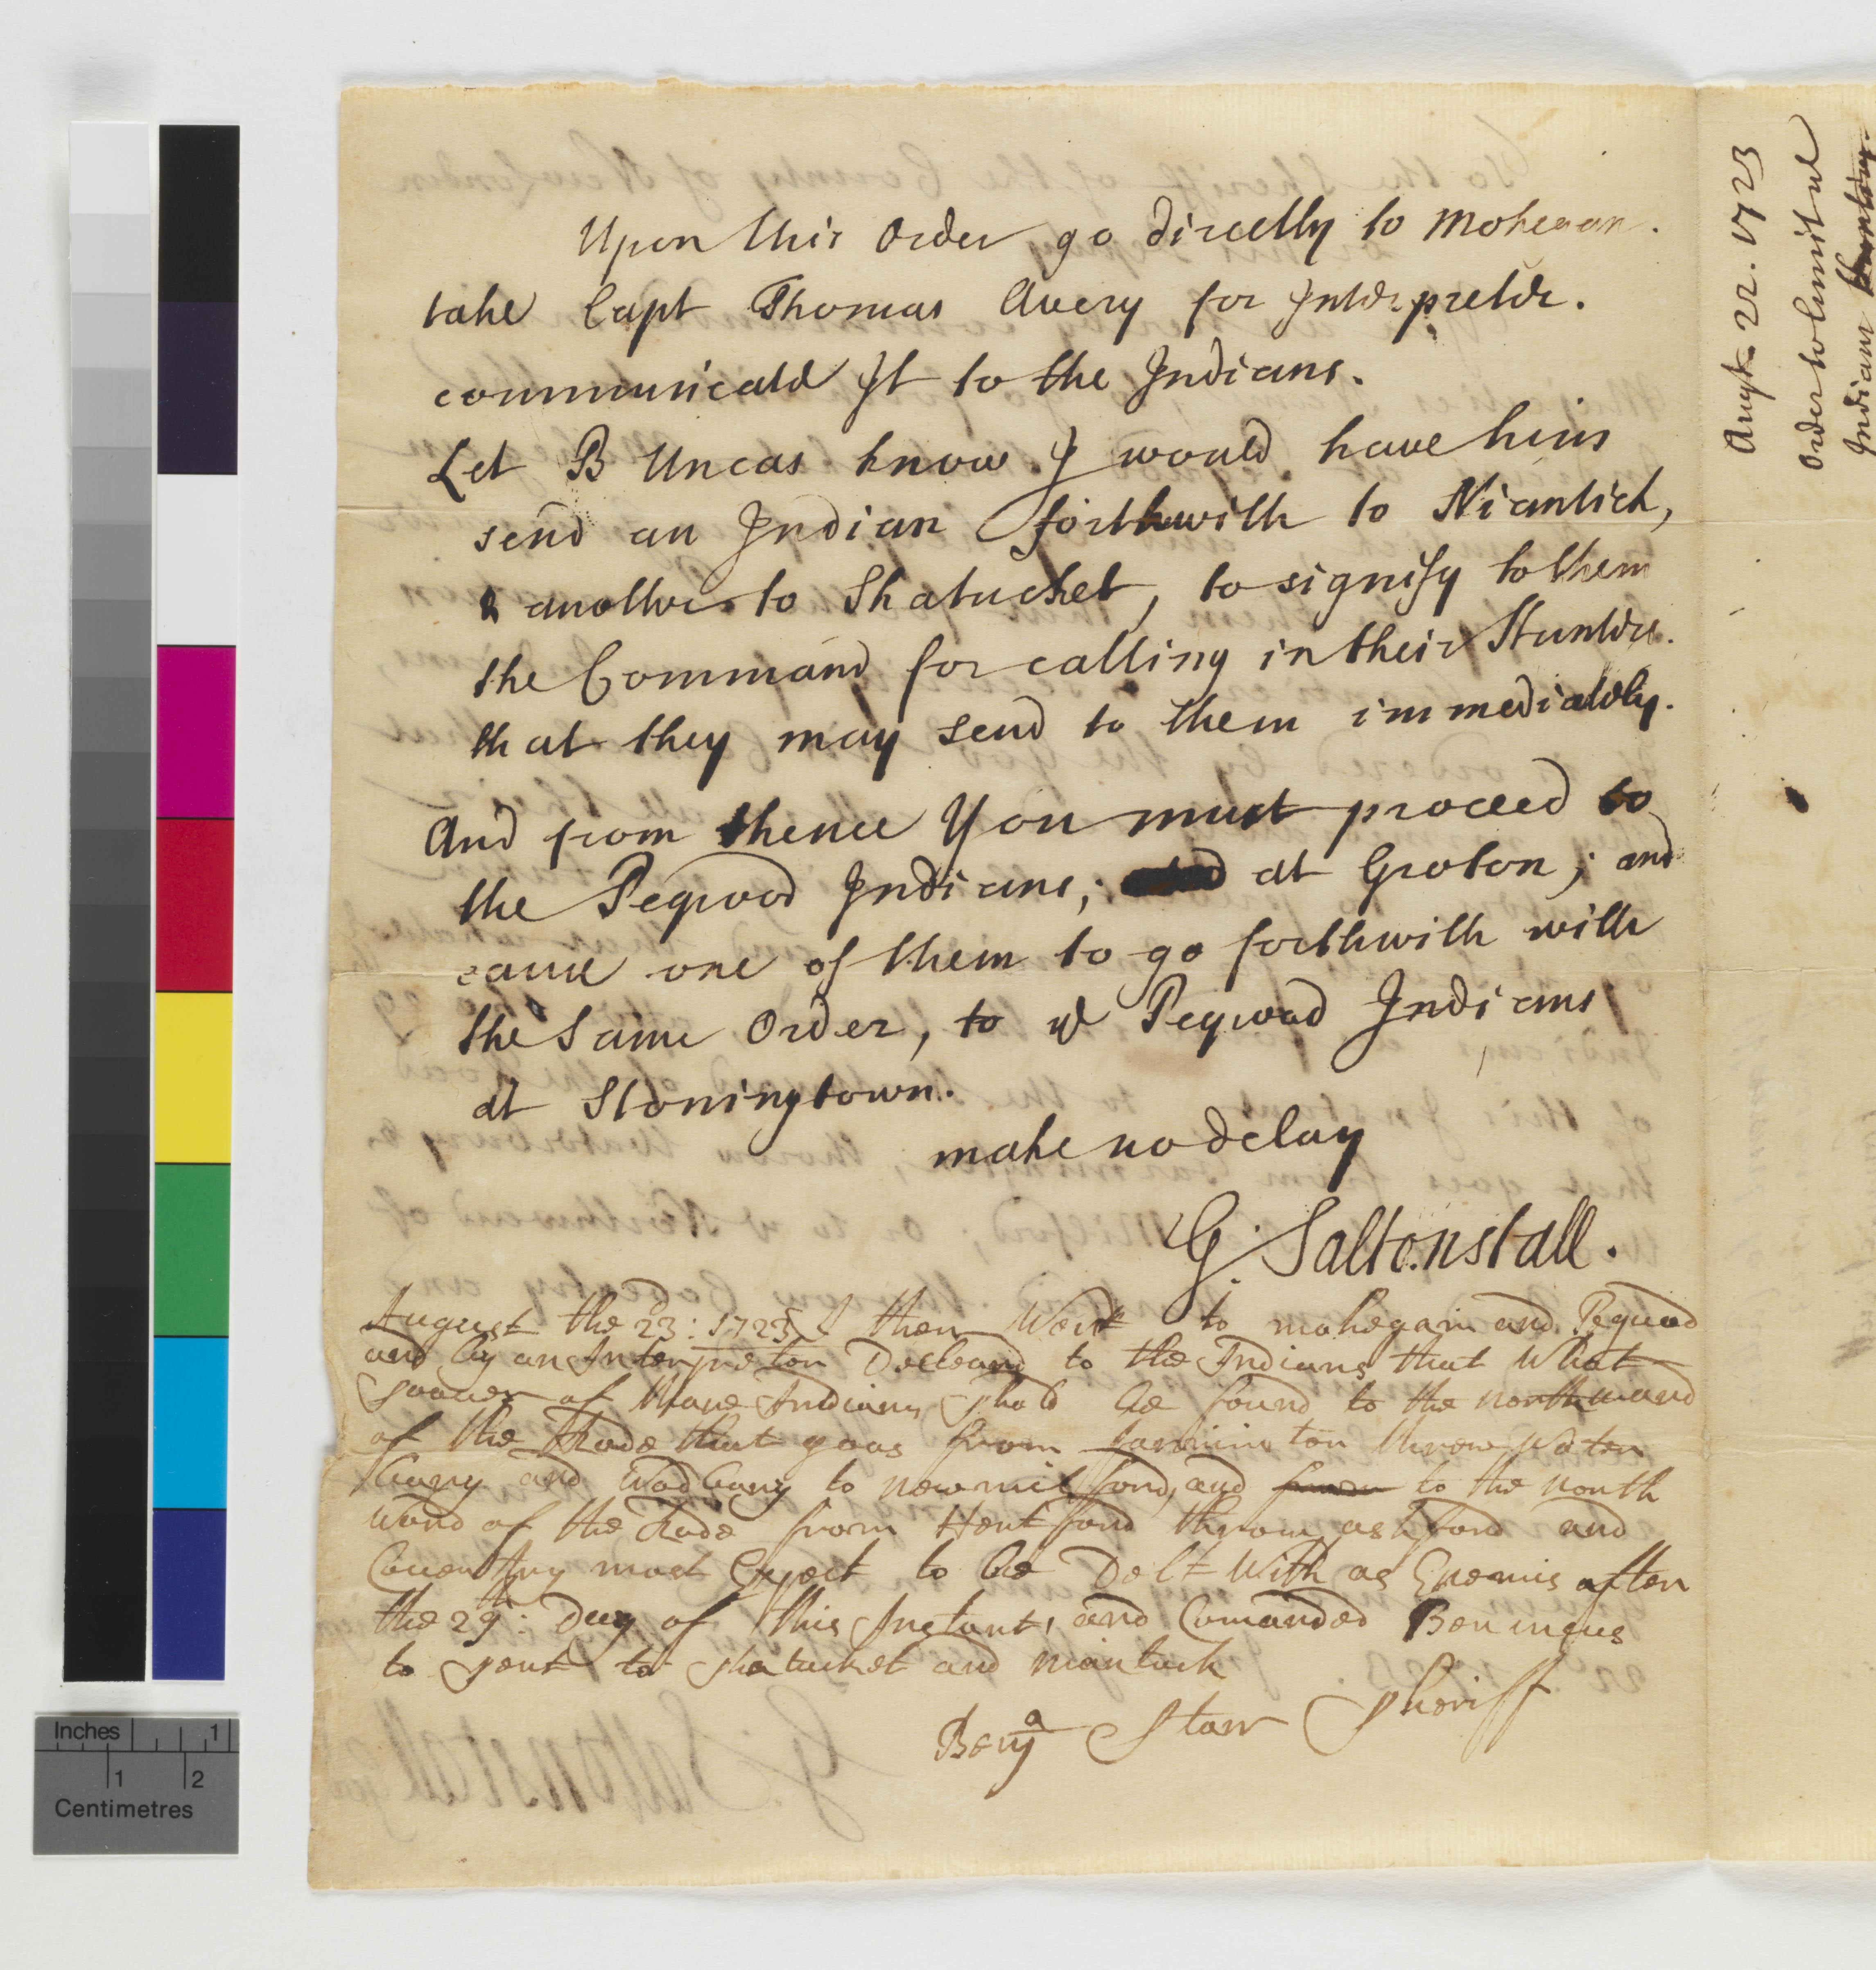 Upon this Order go directly to Mohegan.
take Capt Thomas Avery for Interpreter.
communicate It to the Indians.
Let B Uncas know I would have him
send an Indian forthwith to Niantick,
& another to Shatucket, to signify to them
the Command for calling in their Hunters.
that they may send to them immediately.
And from thence You must proceed to
the Pequod Indians; at Groton; and
cause one of them to go forthwith with
the same Order, to ye Pequod Indians
at Stoningtown.
make no delay
G. Saltonstall.
August the 23d: 1723 I then Went to mohegain and Pequod
and by an Interpretor Decleared to the Indians that What
soever of thare Indians shold be found to the northward
of the Rode that goas from farminton throw Water
bury and Wodbury to newmilford, and to the north
ward of the Rode from Hertford throw ashford and
Couentry must Expect to be Delt With as Enemis after
the 29th: Day of this Instant, and Comanded Ben uncus
to sent to shatucket and niantuck
Benja Starr Sheriff
Augst. 22. 1723
Order to limit ye
Indians hunting
Inches 1
1 2
Centimetres